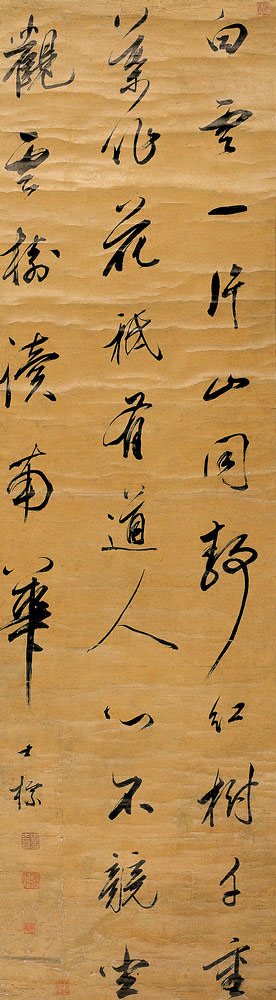 白雲一片山同靜紅樹千重
葉作花祇有道人心不競坐
觀雲樹讀南華
士標